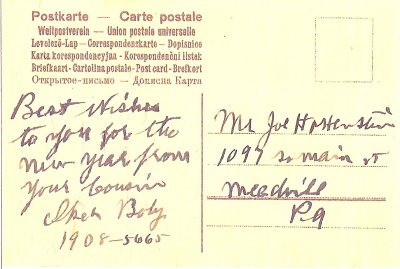 Postkarte — Carte postale
Weltpostverein — Union postale universelle
Levelező-Lap — Correspondenzkarte — Dopisnice
Karta korespondencyjna - Korespondenční listek
Briefkaart - Cartolina postale - Post card - Brefkort
Открытое письмо — Дописна Карта
Best Wishes
to you for the
New Year from
your Cousin
Boby
1908-5665
Mr Joe
1097 So main st
Meedville
Pa